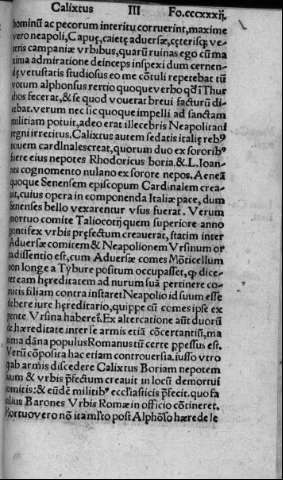 Calixtus III Fo.cccxxxij.
hominũ ac pecorum interitu corruerint, maxime
vero neapoli, Capuę, caietę aduersæ, cęterisqꝫ ve-
teris campaniæ vrbibus, quarũ ruinas ego cũ ma
xima admiratione deinceps inspexi dum cernen-
dę vetustatis studiosus eo me cõtuli repetebat tũ
votum alphonsus rertio quoque verbo qđ i Thur
chos fecerat, & se quod vouerat breui facturũ di-
cebat. verum nec sic quoque impelli ad sanctam
militiam potuit, adeo erat illecebris Neapolitani
regni irretitus. Calixtus autem sedatis italię rebꝰ
nouem cardinales creat, quorum duo ex sororibꝰ
fuere eius nepotes Rhodoricus boria. & L. Ioan-
nes cognomento nulano ex sorore nepos. Aeneã
quoque Senensem episcopum Cardinalem crea-
uit, cuius opera in componenda Italiæ pace, dum
Senenses bello vexarentur vsus fuerat. Verum
mortuo comite Taliocorij quem superiore anno
pontifex vrbis pręfectum creauerat, statim inter
Aduersæ comitem & Neapolionem Vrsinum or
ta dissentio est, cum Aduersæ comes Mõticellum
non longe a Tybure positum occupasset, ꝙ dice-
ret eam hęreditatem ad nurum suã pertinere co-
mitis filiam contra instaret Neapolio id suum esse
debere iure hęreditario, quippe cũ comes ipse ex
gente Vrsina haberet. Ex altercatione aũt duorũ
de hæreditate inter se armis etiã cõcertantiũ, ma
xima dãna populus Romanus tũ certe ppessus est.
Verũ cõposita hac etiam controuersia, iusso vtro
qꝫ ab armis discedere Calixtus Boriam nepotem
suum & vrbis pręfectum creauit in locũ demortui
comitis: & eũdẽ militibꝰ ecclesiasticis pręfecit. quo fa
cilius Barones Vrbis Romæ in officio cõtineret.
Mortuo vero nõ ita multo post Alphõso hærede le